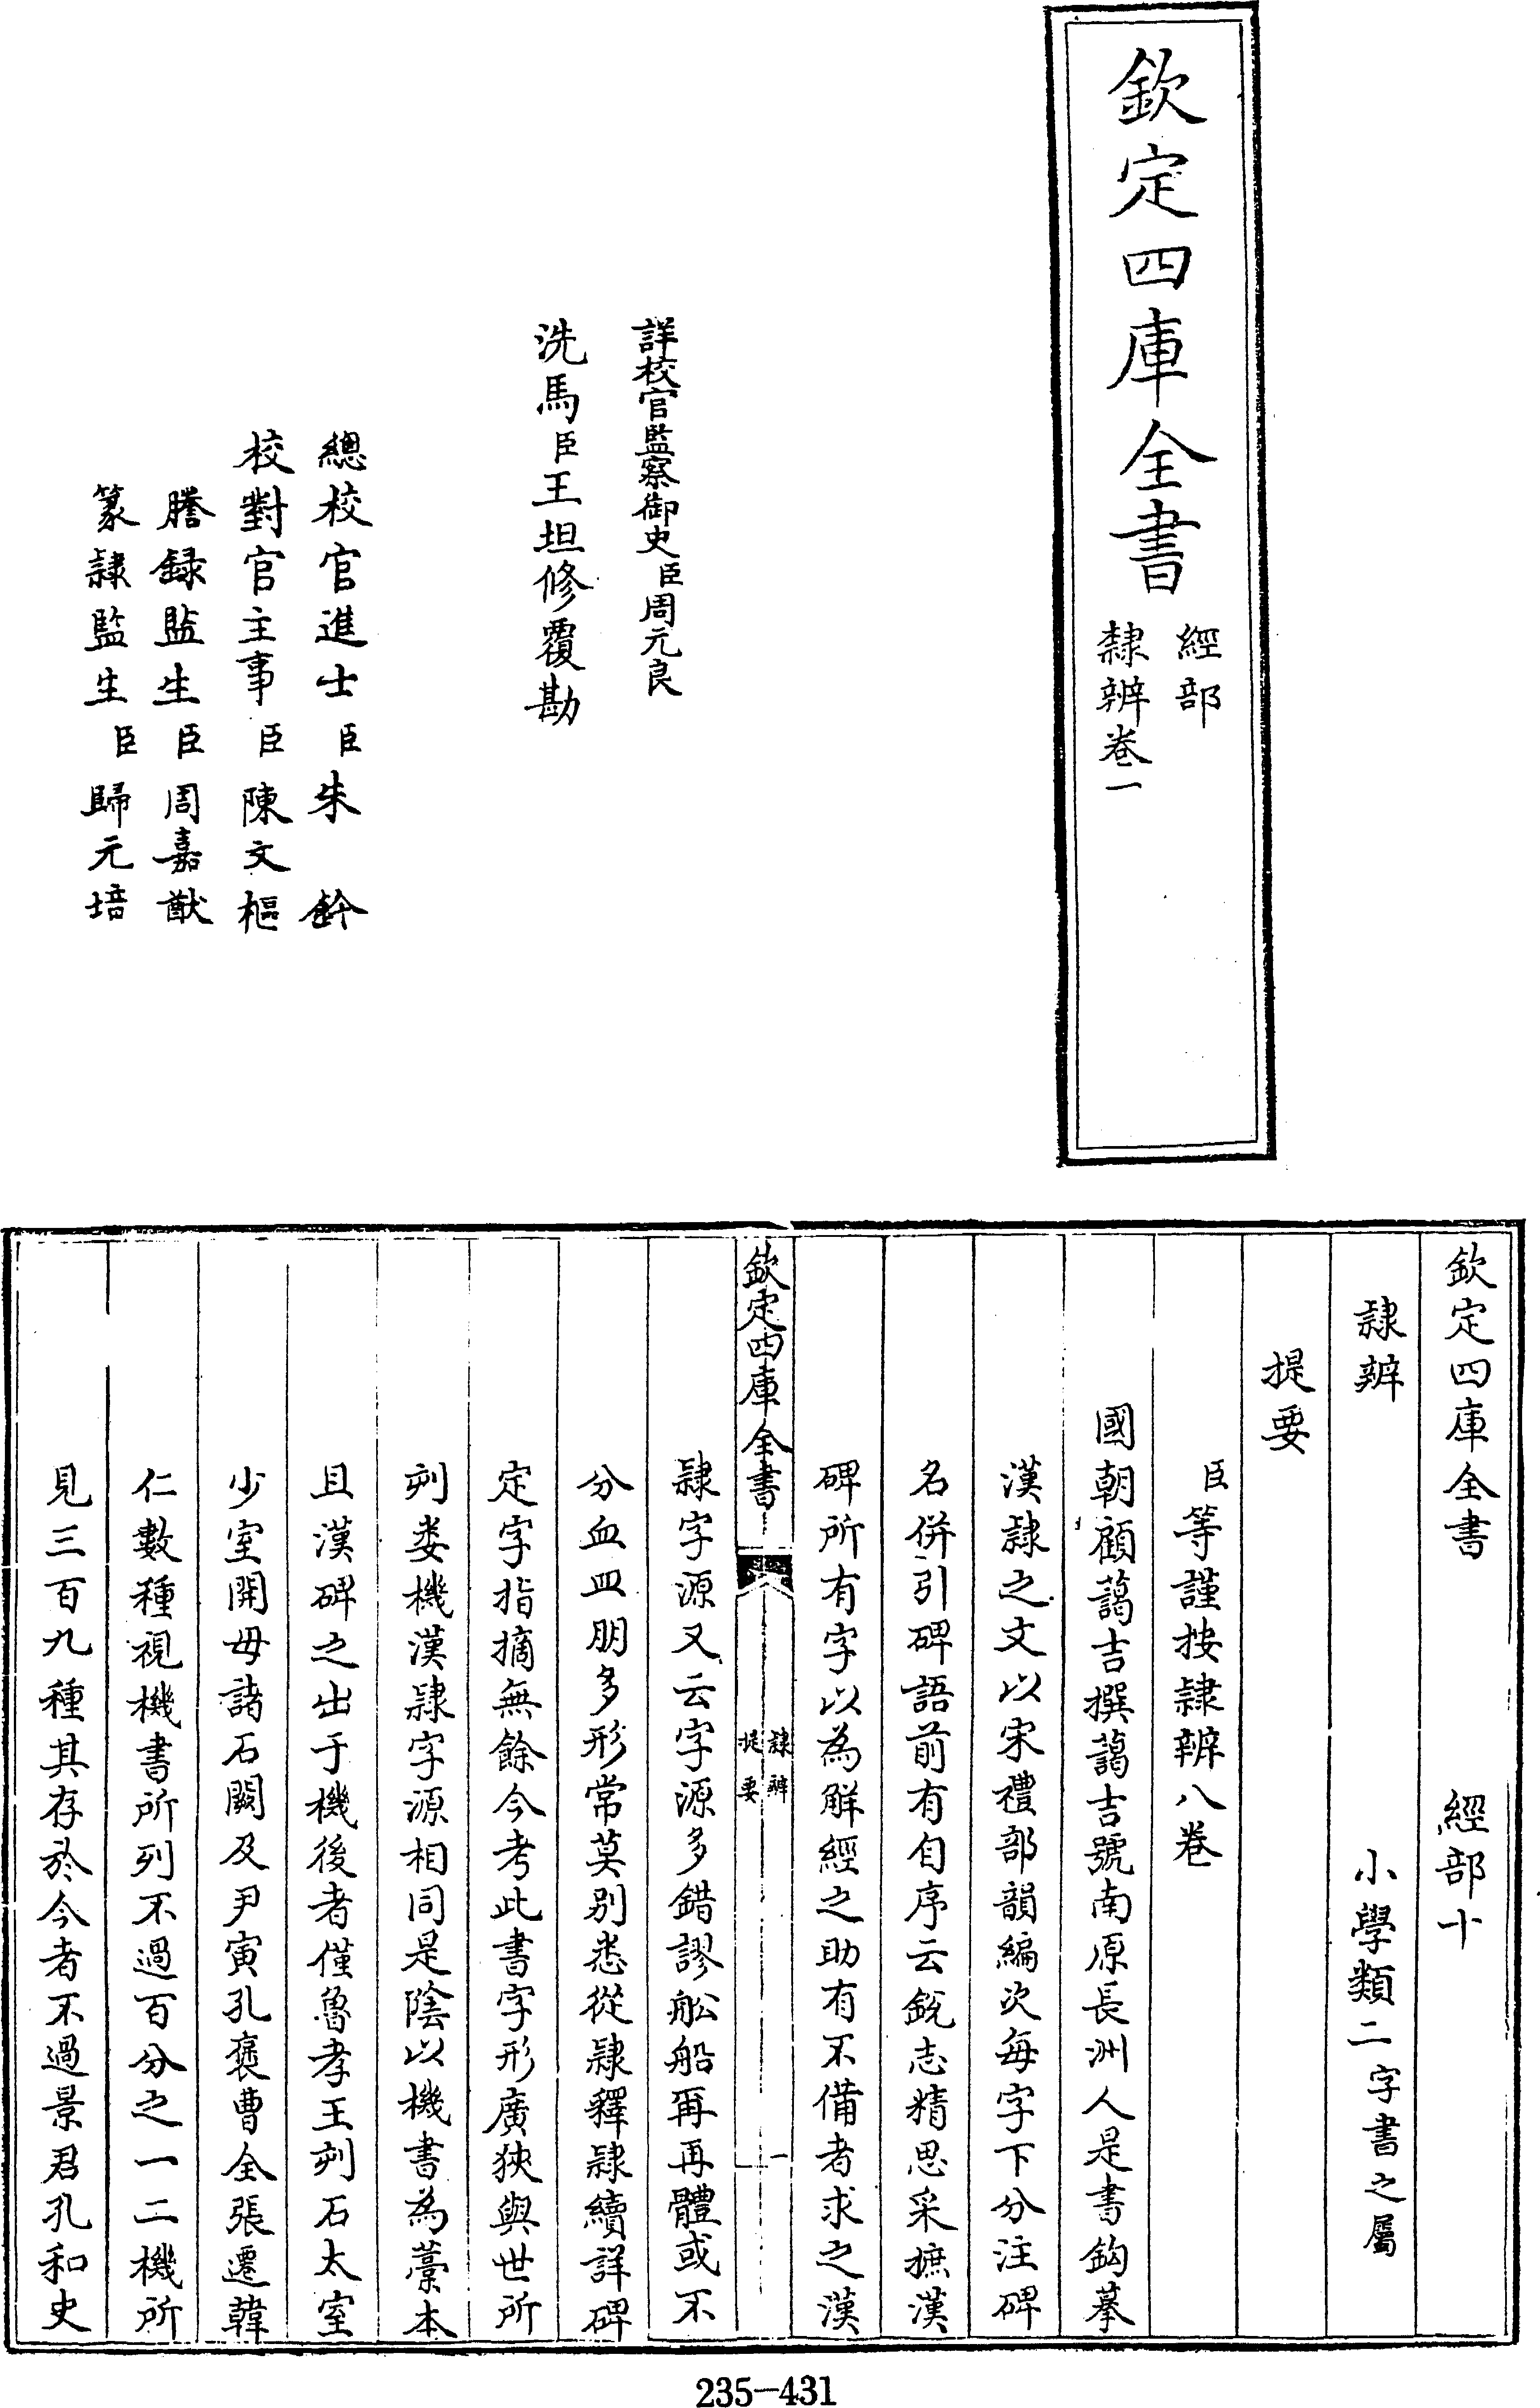 欽定四庫全書
經部
隸辨卷一
詳校官監察御史臣周元良
洗馬臣王坦修覆勘
總校官進士臣朱鈐
校對官主事臣陳文樞
謄録監生臣周嘉猷
篆隸監生臣歸元培
欽定四庫全書 經部十
隷辨 小學類二字書之屬
提要
臣等謹按隷辨八卷
國朝顧藹吉撰藹吉號南原長洲人是書鈎摹
漢隷之文以宋禮部韻編次每字下分注碑
名併引碑語前有自序云銳志精思采摭漢
碑所有字以為解經之助有不備者求之漢
欽定四庫全書
隷辨
提要
一
隷字源又云字源多錯謬舩船再再體或不
分血皿朋多形常莫别悉從隷釋隷續詳碑
定字指摘無餘今考此書字形廣狹與世所
刋婁機漢隷字源相同是陰以機書為藁本
且漢碑之出于機後者僅魯孝王刋石太室
少室開母諸石闕及尹寅孔褒曹全張遷韓
仁數種視機書所列不過百分之一二機所
見三百九種其存於今者不過景君孔和史
235-431